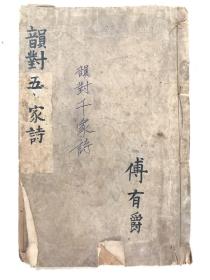 韻對五家詩
韻對千家詩
傅有爵